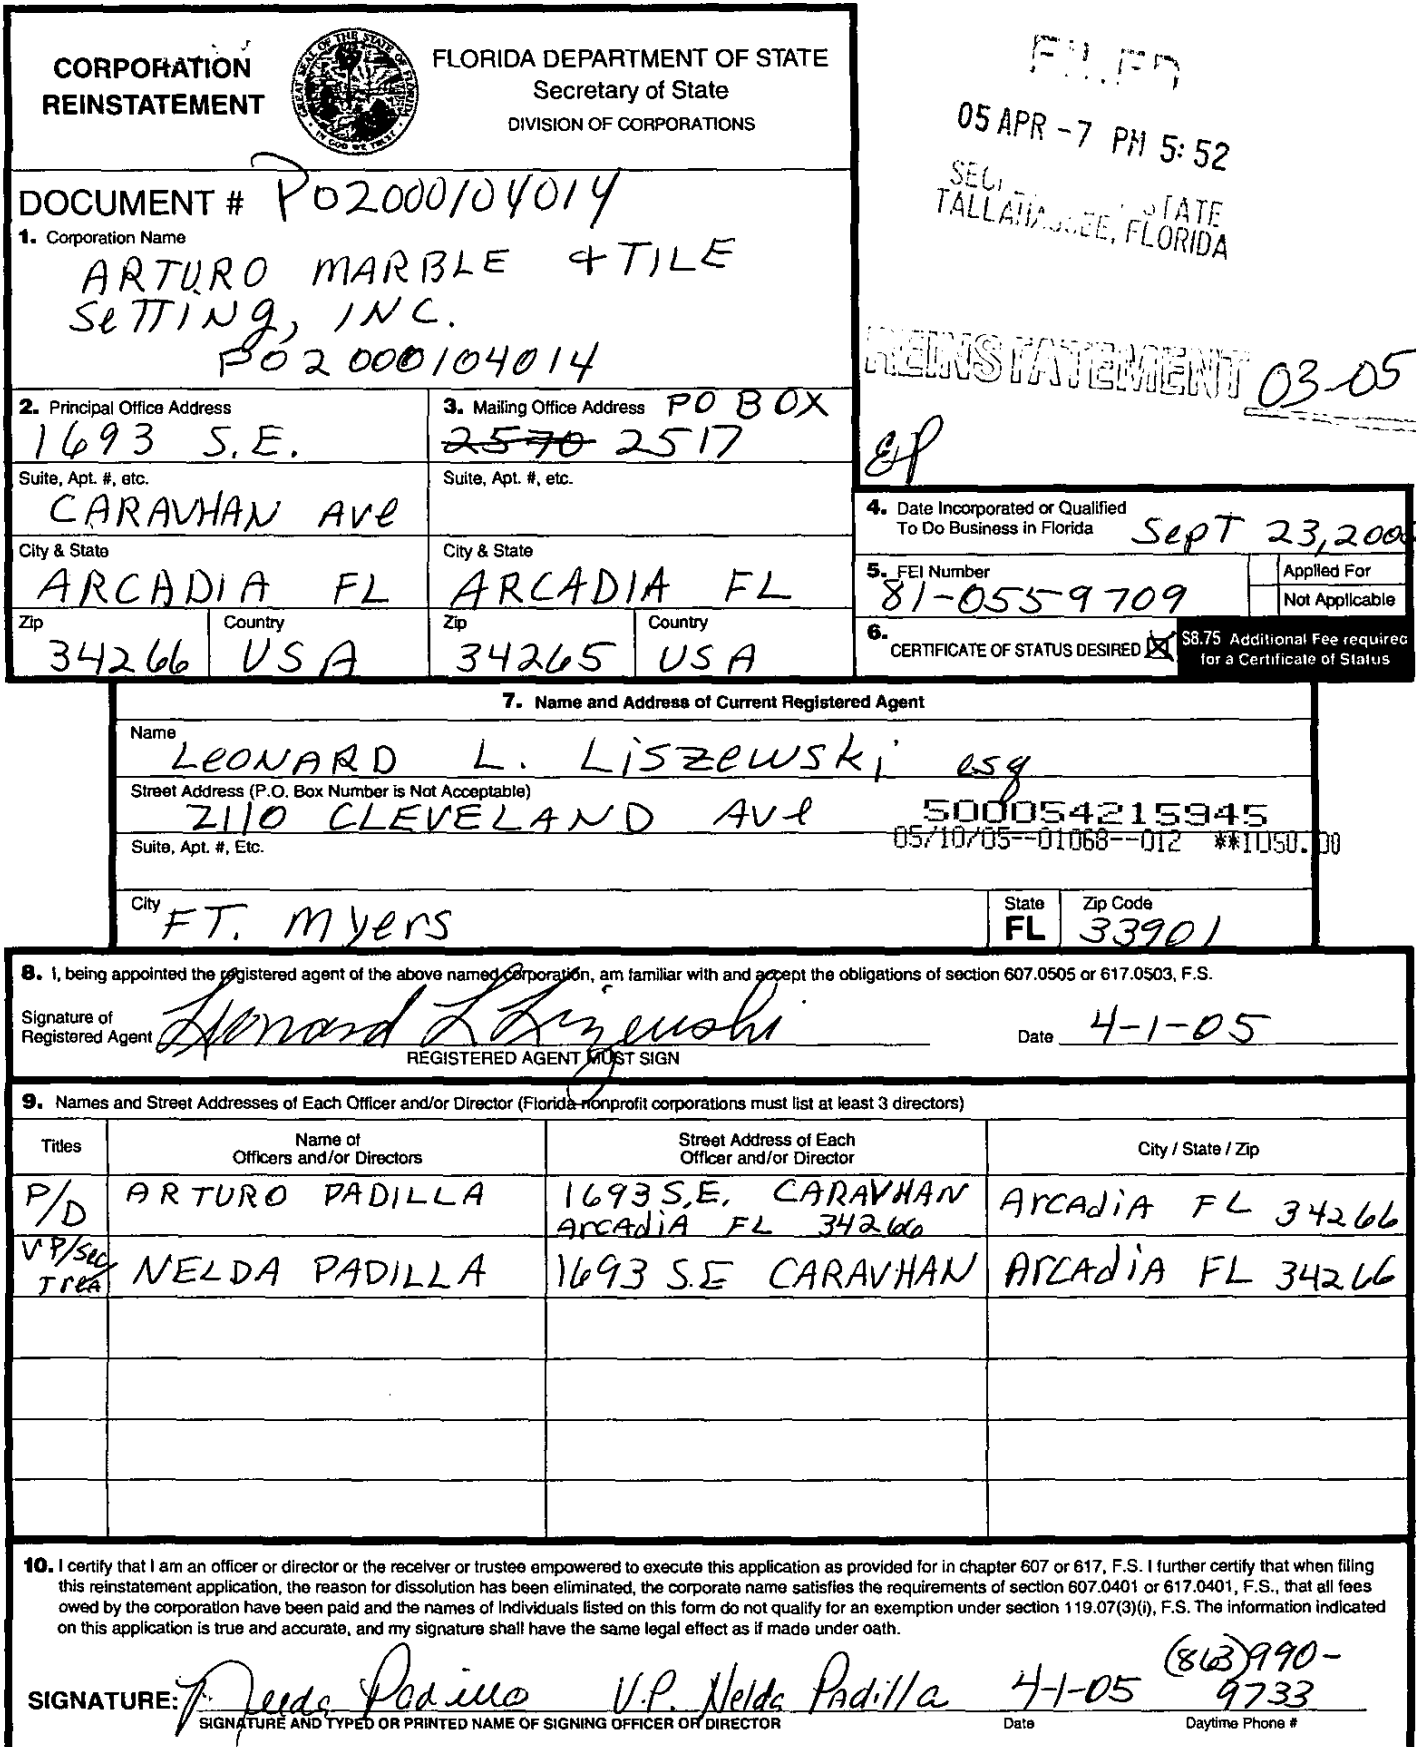 CORPORATION
REINSTATEMENT
FLORIDA DEPARTMENT OF STATE
Secretary of State
DIVISION OF CORPORATIONS
FILED
05 APR -7 PM 5:52
STATE
TALLAHASSEE, FLORIDA
DOCUMENT # P02000104014
1. Corporation Name
ARTURO MARBLE & TILE
SeTTING, INC.
P02000104014
REINSTATEMENT 03-05
2. Principal Office Address
1693 S.E.
3. Mailing Office Address PO BOX
2570 2517
Suite, Apt. #, etc.
CARAVHAN Ave
Suite, Apt. #, etc.
City & State
ARCADIA FL
City & State
ARCADIA FL
Zip
34266
Country
USA
Zip
34265
Country
USA
4. Date Incorporated or Qualified
To Do Business in Florida SepT 23,
5. FEI Number
81-0559709
Applied For
Not Applicable
6. CERTIFICATE OF STATUS DESIRED
$8.75 Additional Fee required
for a Certificate of Status
7. Name and Address of Current Registered Agent
Name
LeONARD L. LiSzewski esq
Street Address (P.O. Box Number is Not Acceptable)
2110 CLEVELAND Ave
500054215945
05/10/05--01068--012 **1050.00
Suite, Apt. #, Etc.
City
FT. Myers
State
FL
Zip Code
33901
8. I, being appointed the registered agent of the above named corporation, am familiar with and accept the obligations of section 607.0505 or 617.0503, F.S.
Signature of
Registered Agent Leonard L Liszewski
Date 4-1-05
REGISTERED AGENT MUST SIGN
9. Names and Street Addresses of Each Officer and/or Director (Florida nonprofit corporations must list at least 3 directors)
Titles
Name of
Officers and/or Directors
Street Address of Each
Officer and/or Director
City / State / Zip
P/D ARTURO PADILLA 1693 S.E. CARAVHAN ArcAdiA FL 34266
ArcAdiA FL 34266
VP/Sec/
Trea NELDA PADILLA 1693 S.E CARAVHAN ArcAdiA FL 34266
10. I certify that I am an officer or director or the receiver or trustee empowered to execute this application as provided for in chapter 607 or 617, F.S. I further certify that when filing
this reinstatement application, the reason for dissolution has been eliminated, the corporate name satisfies the requirements of section 607.0401 or 617.0401, F.S., that all fees
owed by the corporation have been paid and the names of individuals listed on this form do not qualify for an exemption under section 119.07(3)(i), F.S. The information indicated
on this application is true and accurate, and my signature shall have the same legal effect as if made under oath.
SIGNATURE: Nelda Padilla V.P. Nelda Padilla 4-1-05 (863)990-
9733
SIGNATURE AND TYPED OR PRINTED NAME OF SIGNING OFFICER OR DIRECTOR
Date
Daytime Phone #